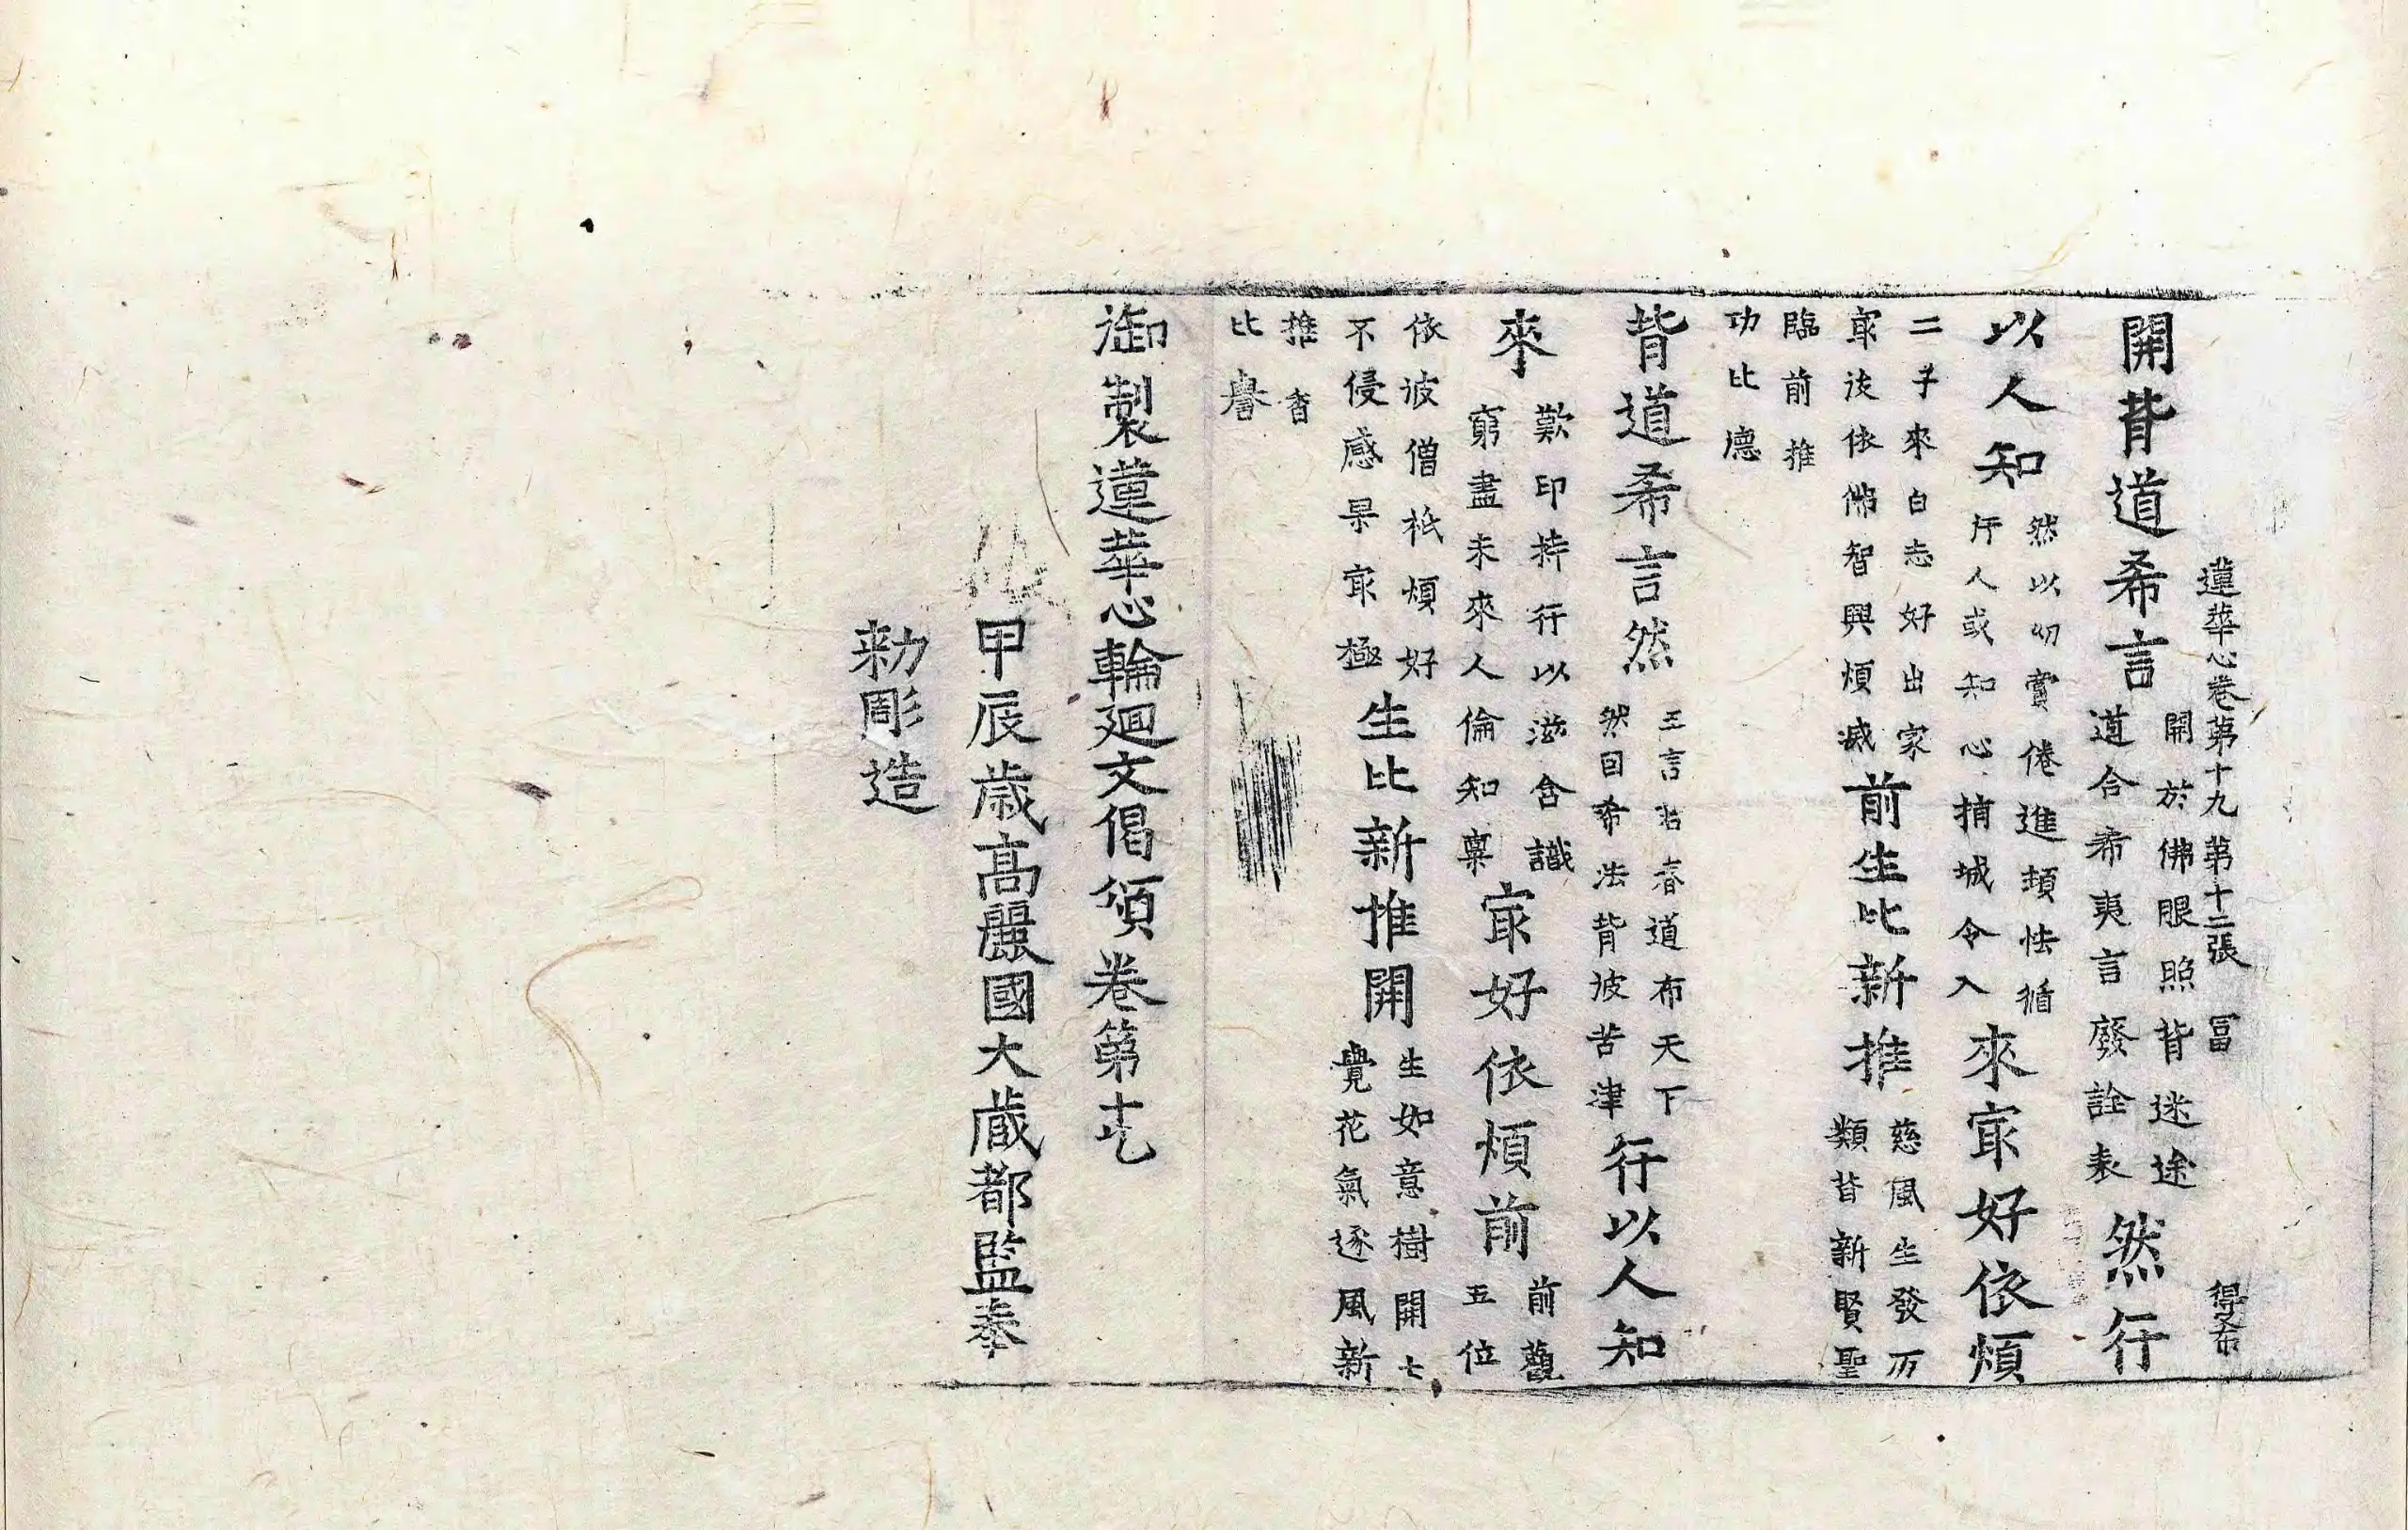 蓮華心卷第十九 第十二張 冨
開背道希言開於佛眼照背迷途道合希夷言廢詮表然行
以人知然以切賞倦進怯循行人或知心捕城令入來㝡好依煩
二子來白志好出家㝡後依佛智興煩滅前生比新推慈風生發万類皆新賢聖
臨前推功比德
背道希言然王言若春道布天下然回希法背彼苦津行以人知
來歎印持行以滋含識窮盡未來人倫知稟㝡好依煩前前觀五位
依彼僧祇煩好不侵感果㝡極生比新推開生如意樹開七覺花氣逐風新
推杳比譽
御製蓮華心輪廻文偈頌卷第十九
甲辰歲高麗國大藏都監奉
勑彫造